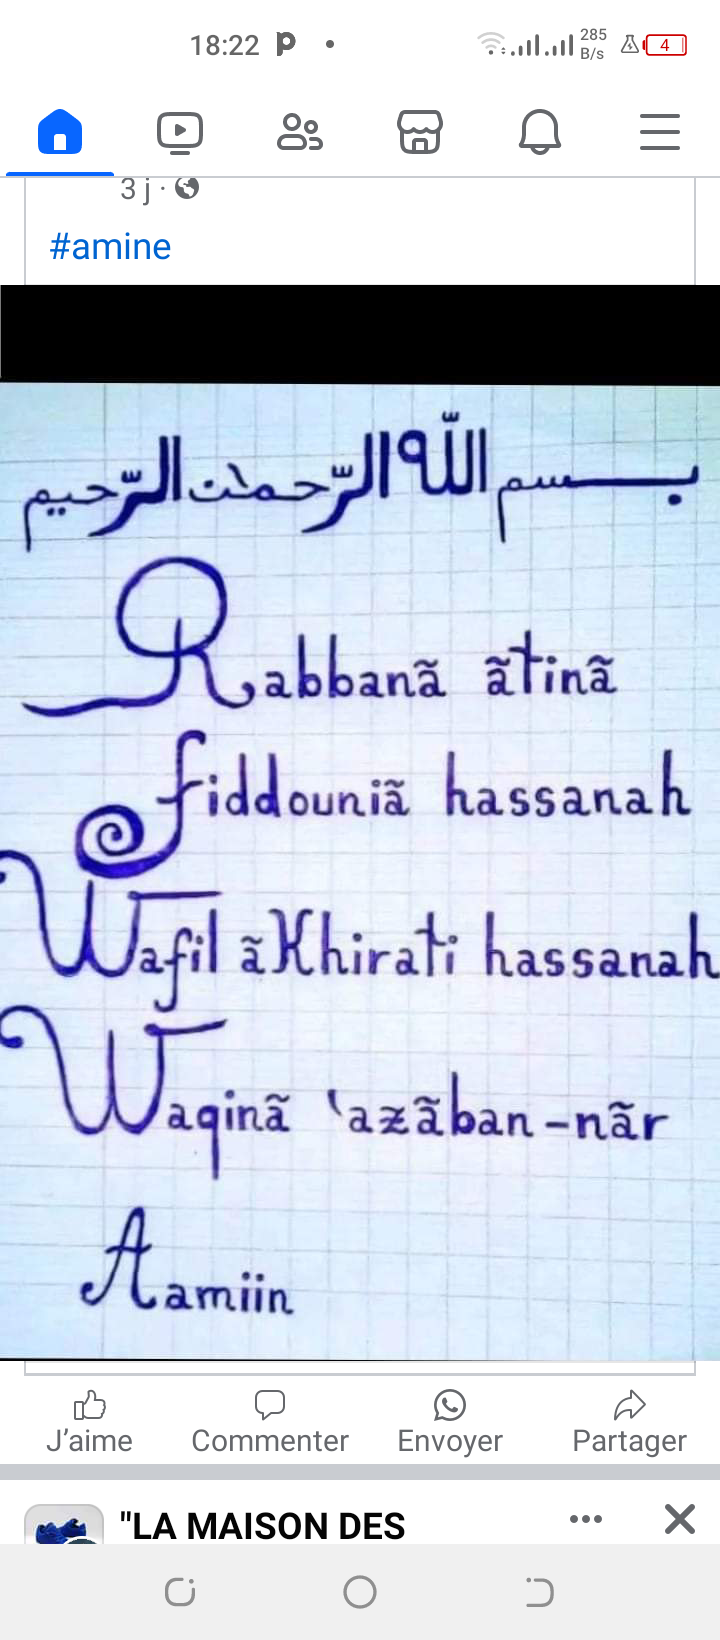 18:22
285 B/s
4
3 j ·
#amine
بسم الله الرّحمٰن الرّحيم
Rabbanã ãtinã
fiddouniã hassanah
Wafil ãKhirati hassanah
Waqinã 'azãban-nãr
Aamiin
J'aime Commenter Envoyer Partager
"LA MAISON DES